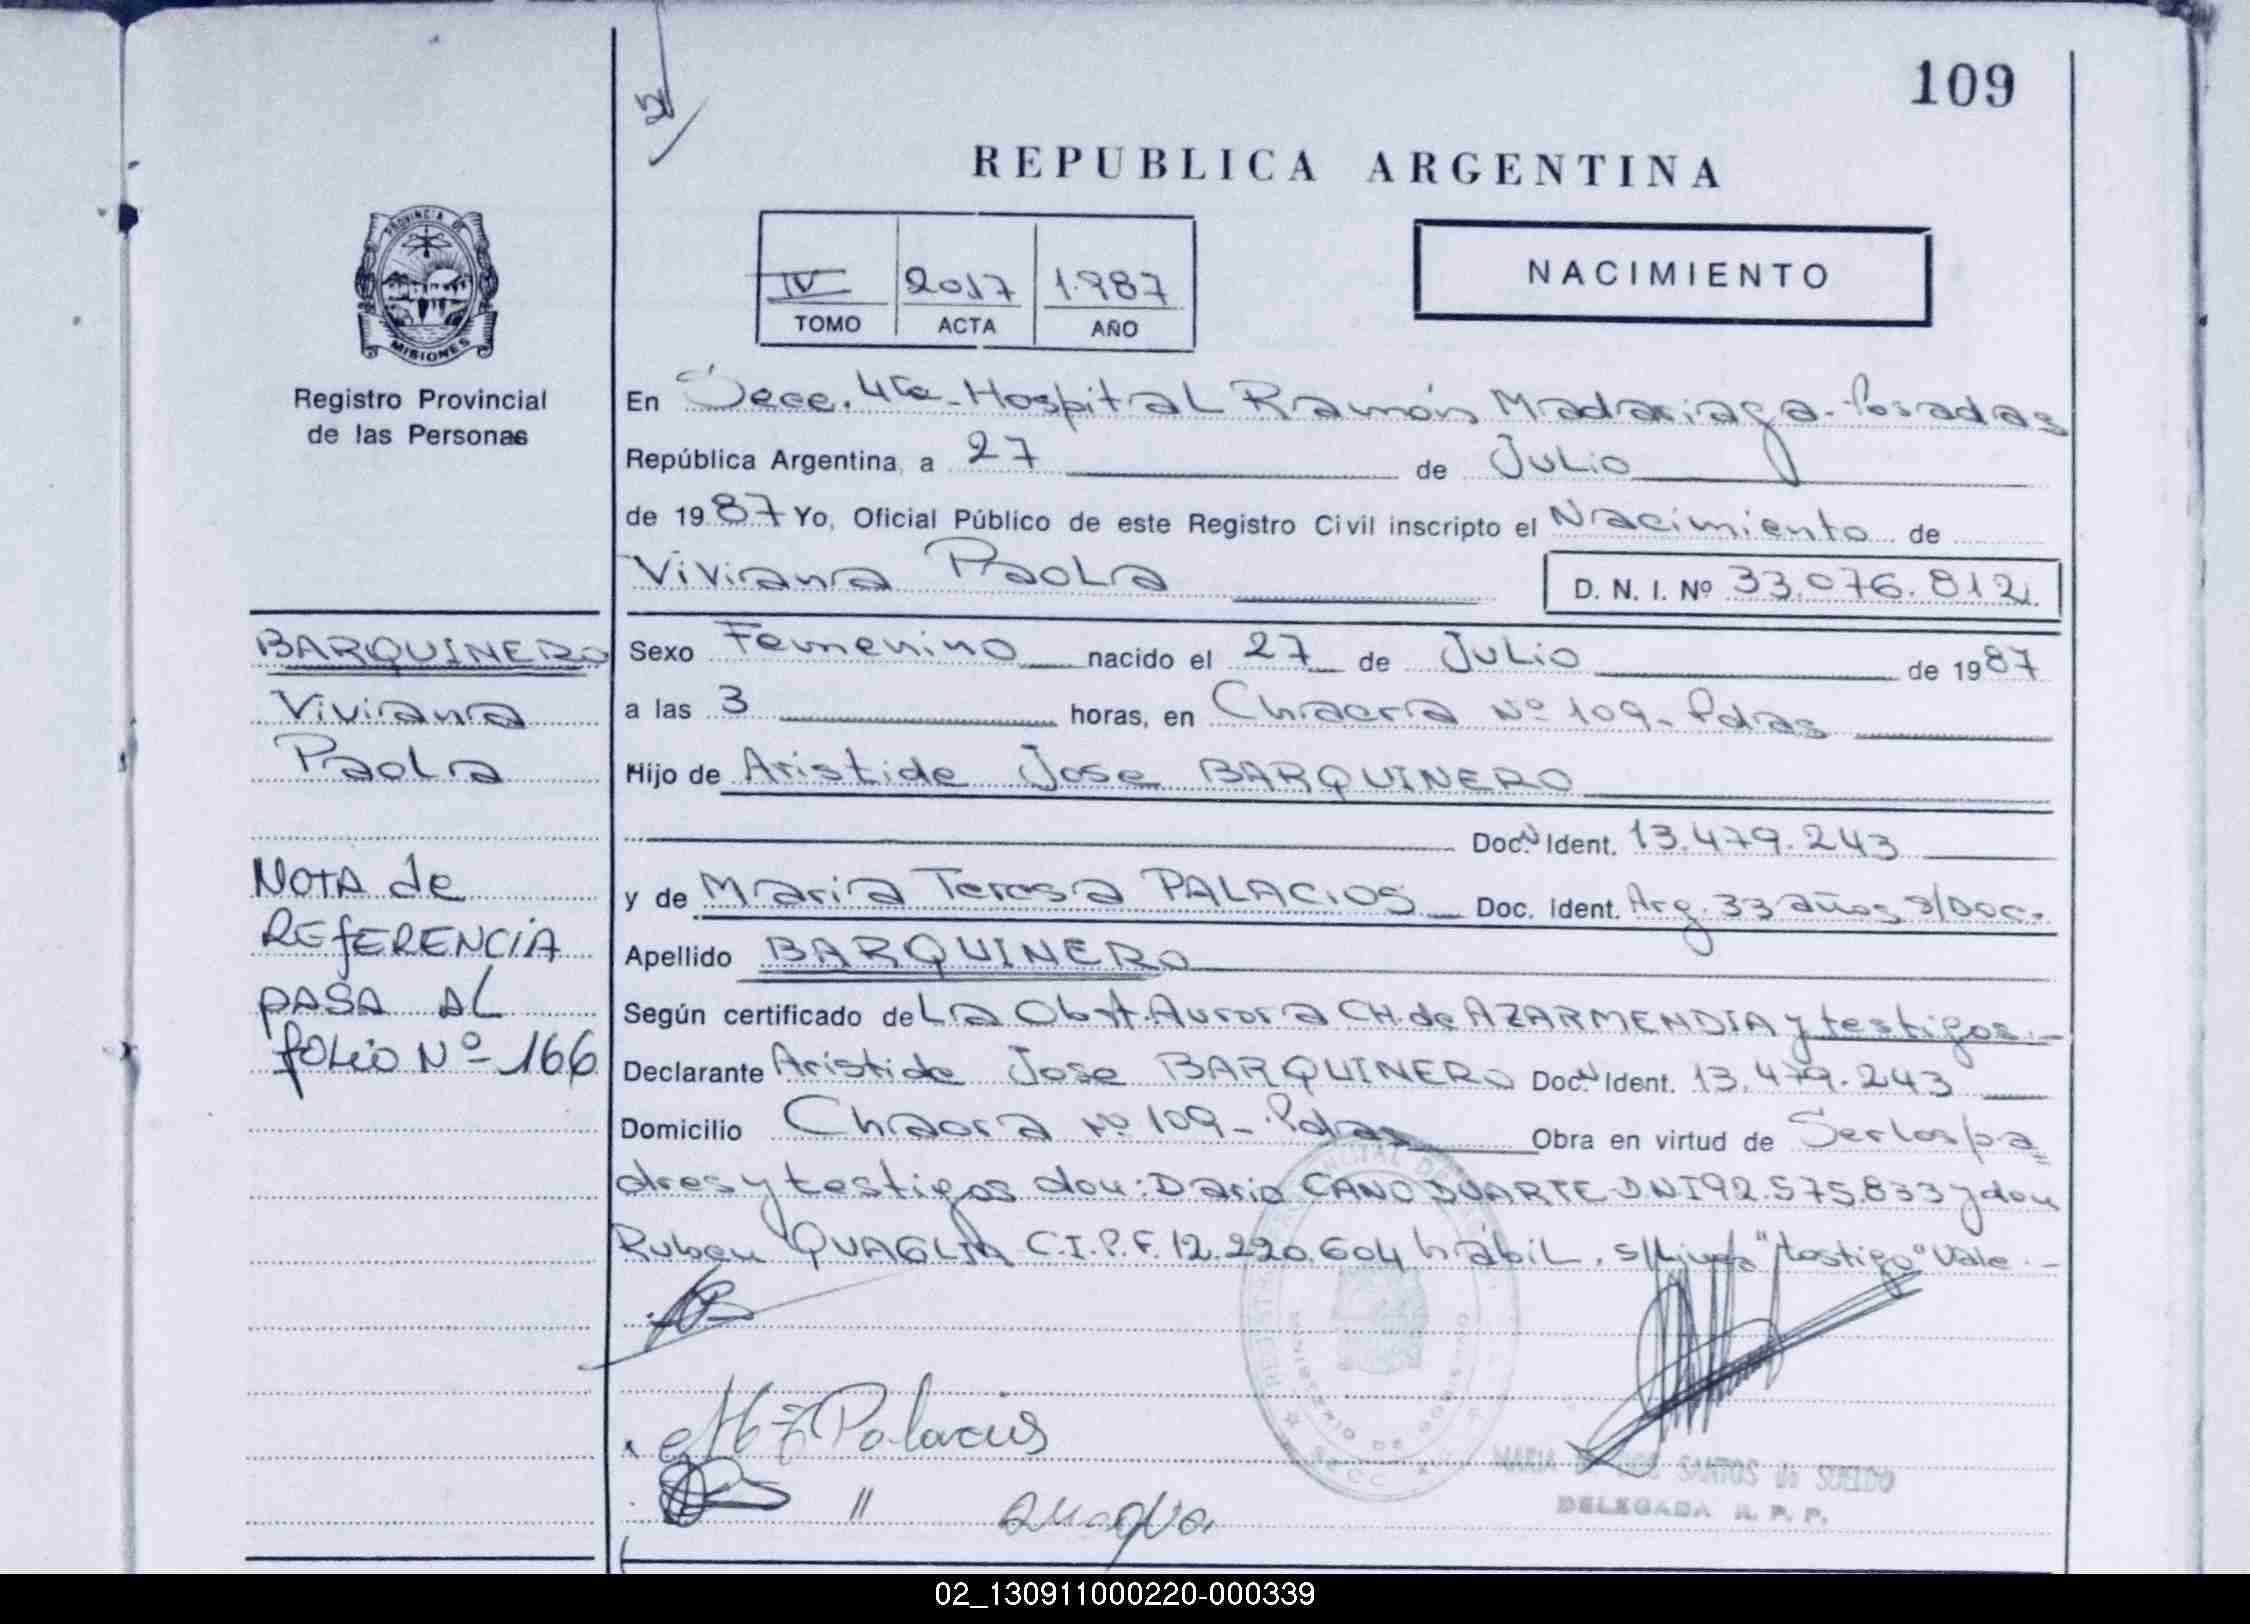 109
REPUBLICA ARGENTINA
PROVINCIA DE
MISIONES
Registro Provincial
de las Personas
IV 2017 1.987
TOMO ACTA AÑO
NACIMIENTO
En Secc. 4ta - Hospital Ramón Madariaga - Posadas
República Argentina, a 27 de Julio
de 1987 Yo, Oficial Público de este Registro Civil inscripto el Nacimiento de
Viviana Paola D. N. I. Nº 33.076.812
BARQUINERO
Viviana
Paola
NOTA de
REfERENCIA
PASA AL
fOLiO Nº - 166
Sexo Femenino nacido el 27 de Julio de 1987
a las 3 horas, en Chacra Nº 109 - Pdas
Hijo de Aristide Jose BARQUINERO
Doc. N Ident. 13.479.243
y de Maria Teresa PALACIOS Doc. Ident. Arg. 33 años s/Doc.
Apellido BARQUINERO
Según certificado de La Obst. Aurora CH. de AZARMENDIA y testigos.-
Declarante Aristide Jose BARQUINERO Doc. N Ident. 13.479.243
Domicilio Chacra Nº 109 - Pdas Obra en virtud de Ser los pa=
dres y testigos don: Dario CANO DUARTE DNI 92.575.833 y don
Ruben QUAGLIA C.I.P.F. 12.220.604 hábil. s/Linea "testigo" Vale.-
Palacios
MARIA DOS SANTOS de SUELDO
DELEGADA R. P. P.
02_130911000220-000339